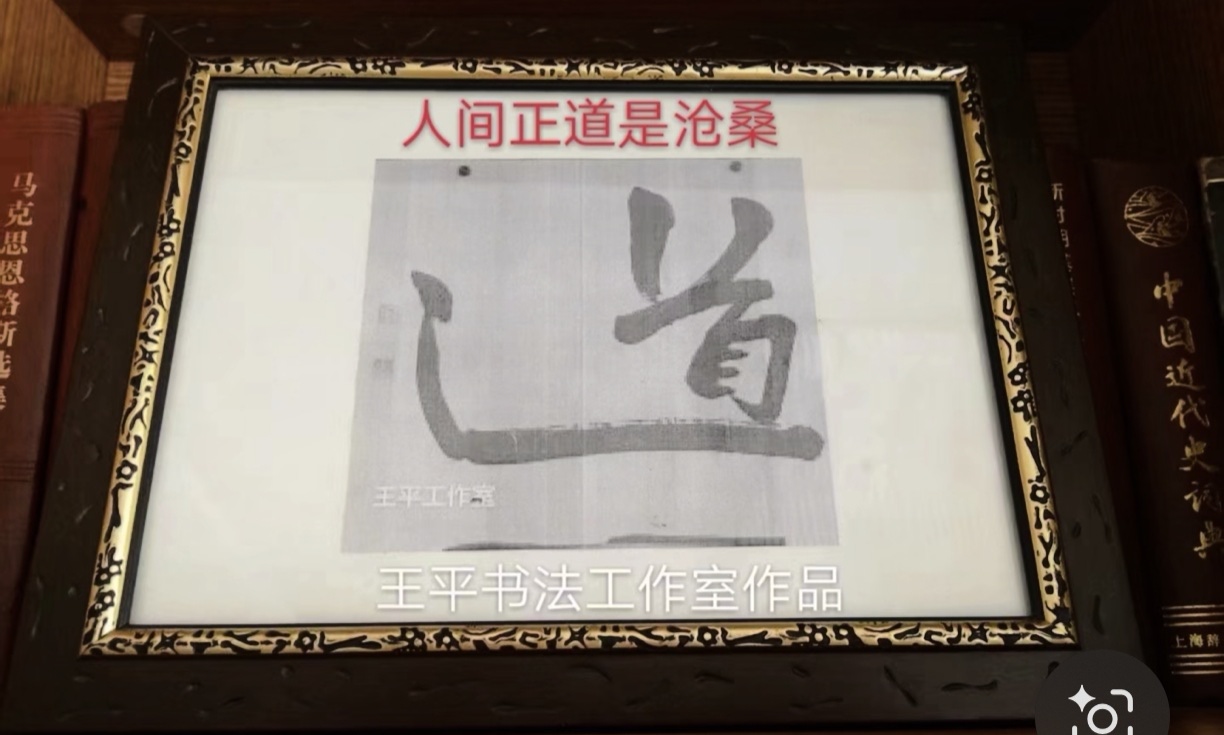 人间正道是沧桑
道
王平工作室
王平书法工作室作品
马克思恩格斯选集
中国近代史词典
上海辞